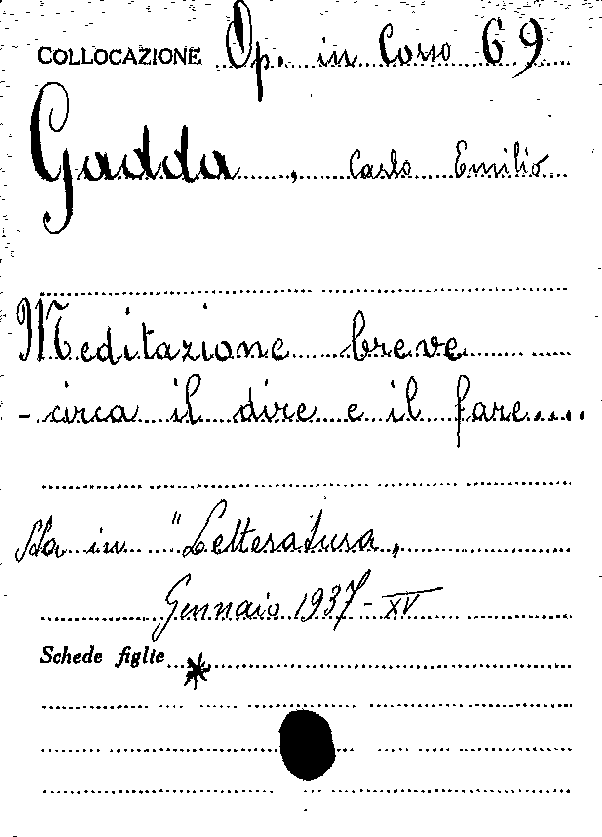 COLLOCAZIONE Op. in Corso 69
Gadda, Carlo Emilio
Meditazione breve
- circa il dire e il fare....
Sta in "Letteratura„
Gennaio 1937-XV
Schede figlie *